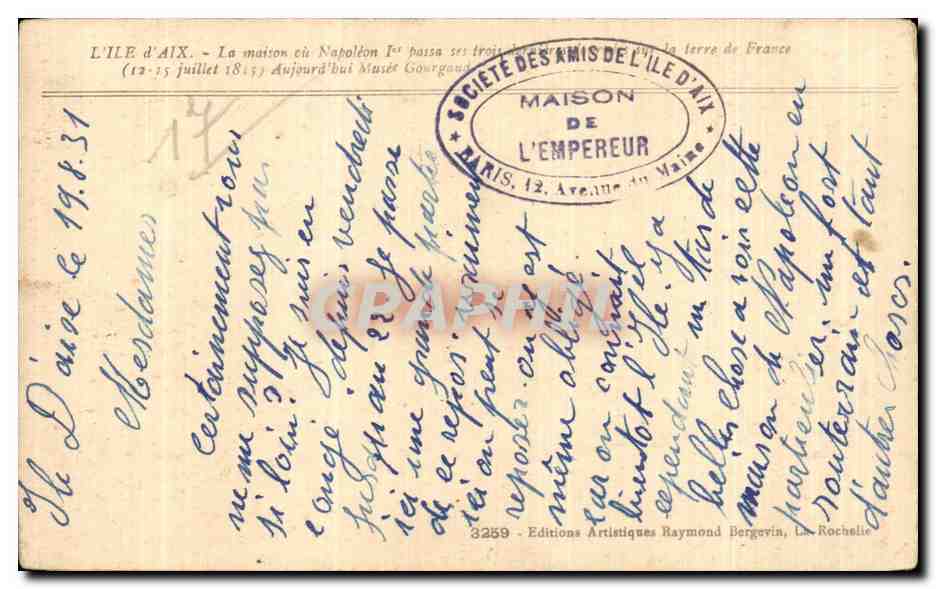 L'ILE d'AIX. - La maison où Napoléon Ier passa ses trois derniers jours sur la terre de France
(12-15 juillet 1815) Aujourd'hui Musée Gourgaud
SOCIÉTÉ DES AMIS DE L'ILE D'AIX
MAISON
DE
L'EMPEREUR
PARIS, 12, Avenue du Maine
17
Ile D'aix le 19.8.31
Mesdames
Certainement vous
ne me supposez pas
si loin? Je suis en
congé depuis vendredi
jusqu'au 22 Je passe
ici une grande partie
de ce repos vraiment
ici on peut se
reposer on y est
même obligé
car on connait
bientot l'Ile. il y a
cependant un tas de
belles choses a voir cette
maison de Napoleon en
particulier un fort
souterrain et tant
d'autres choses.
CPAPHIL
3259 - Editions Artistiques Raymond Bergevin, La Rochelle